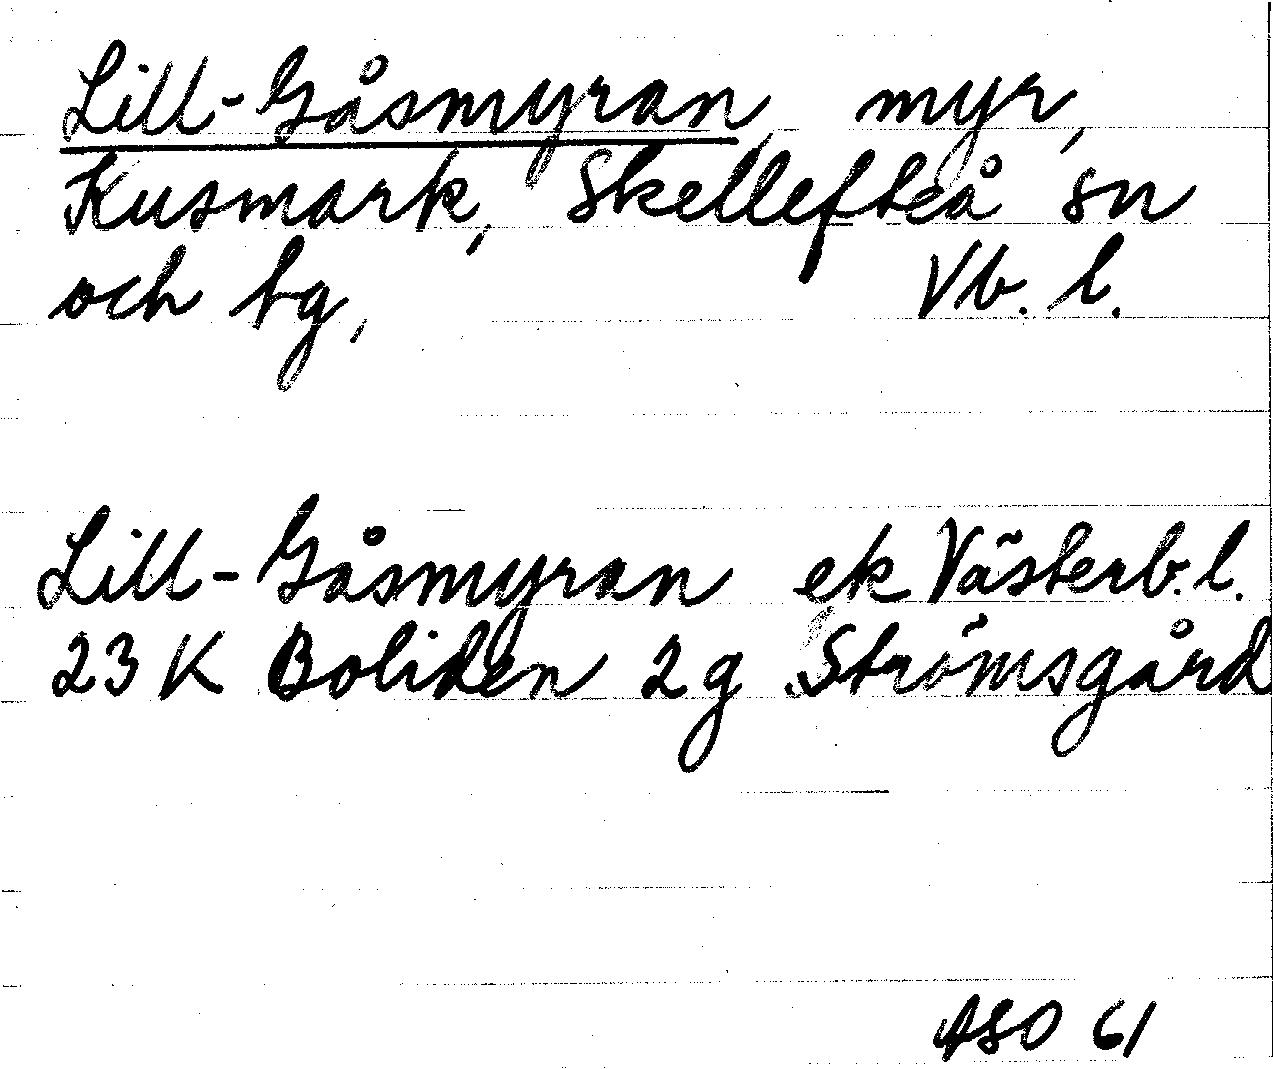 Lill-Gåsmyran, myr,
Kusmark, Skellefteå sn
och tg, Vb. l.
Lill-Gåsmyran ek Västerb. l.
23 K Boliden 2 g Strömsgård
ASO 61